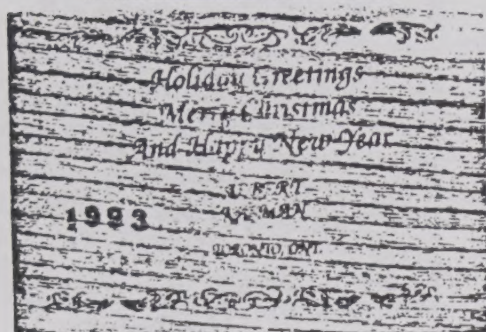 Holiday Greetings
Merry Christmas
And Happy New Year
1993
TORONTO, ONT.